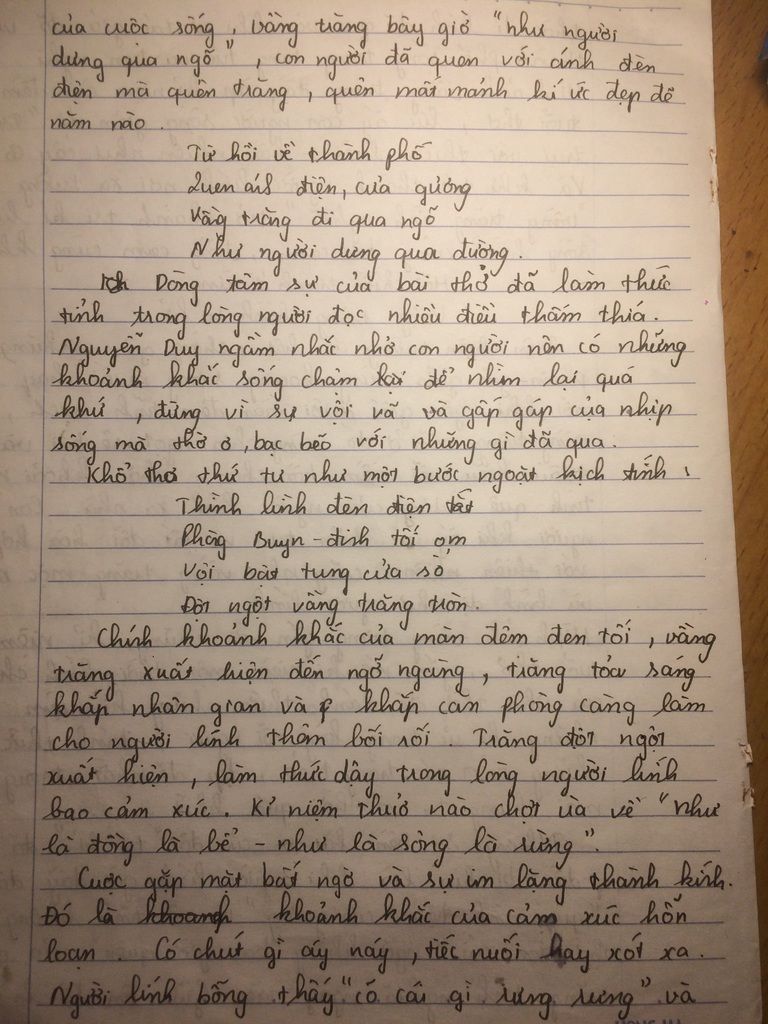 của cuộc sống, vầng trăng bây giờ "như người
dưng qua ngõ", con người đã quen với ánh đèn
điện mà quên trăng, quên mất mảnh kí ức đẹp đẽ
năm nào.
Từ hồi về thành phố
Quen ánh điện, cửa gương
Vầng trăng đi qua ngõ
Như người dưng qua đường.
Dòng tâm sự của bài thơ đã làm thức
tỉnh trong lòng người đọc nhiều điều thấm thía.
Nguyễn Duy ngầm nhắc nhở con người nên có những
khoảnh khắc sống chậm lại để nhìn lại quá
khứ, đừng vì sự vội vã và gấp gáp của nhịp
sống mà thờ ơ, bạc bẽo với những gì đã qua.
Khổ thơ thứ tư như một bước ngoặt kịch tính:
Thình lình đèn điện tắt
Phòng Buyn-đinh tối om
Vội bật tung cửa sổ
Đột ngột vầng trăng tròn.
Chính khoảnh khắc của màn đêm đen tối, vầng
trăng xuất hiện đến ngỡ ngàng, trăng tỏa sáng
khắp nhân gian và khắp căn phòng càng làm
cho người lính thêm bối rối. Trăng đột ngột
xuất hiện, làm thức dậy trong lòng người lính
bao cảm xúc. Kỉ niệm thuở nào chợt ùa về "như
là đồng là bể - như là sông là rừng".
Cuộc gặp mặt bất ngờ và sự im lặng thành kính.
Đó là khoanh khoảnh khắc của cảm xúc hỗn
loạn. Có chút gì áy náy, tiếc nuối hay xót xa.
Người lính bỗng thấy "có cái gì rưng rưng" và